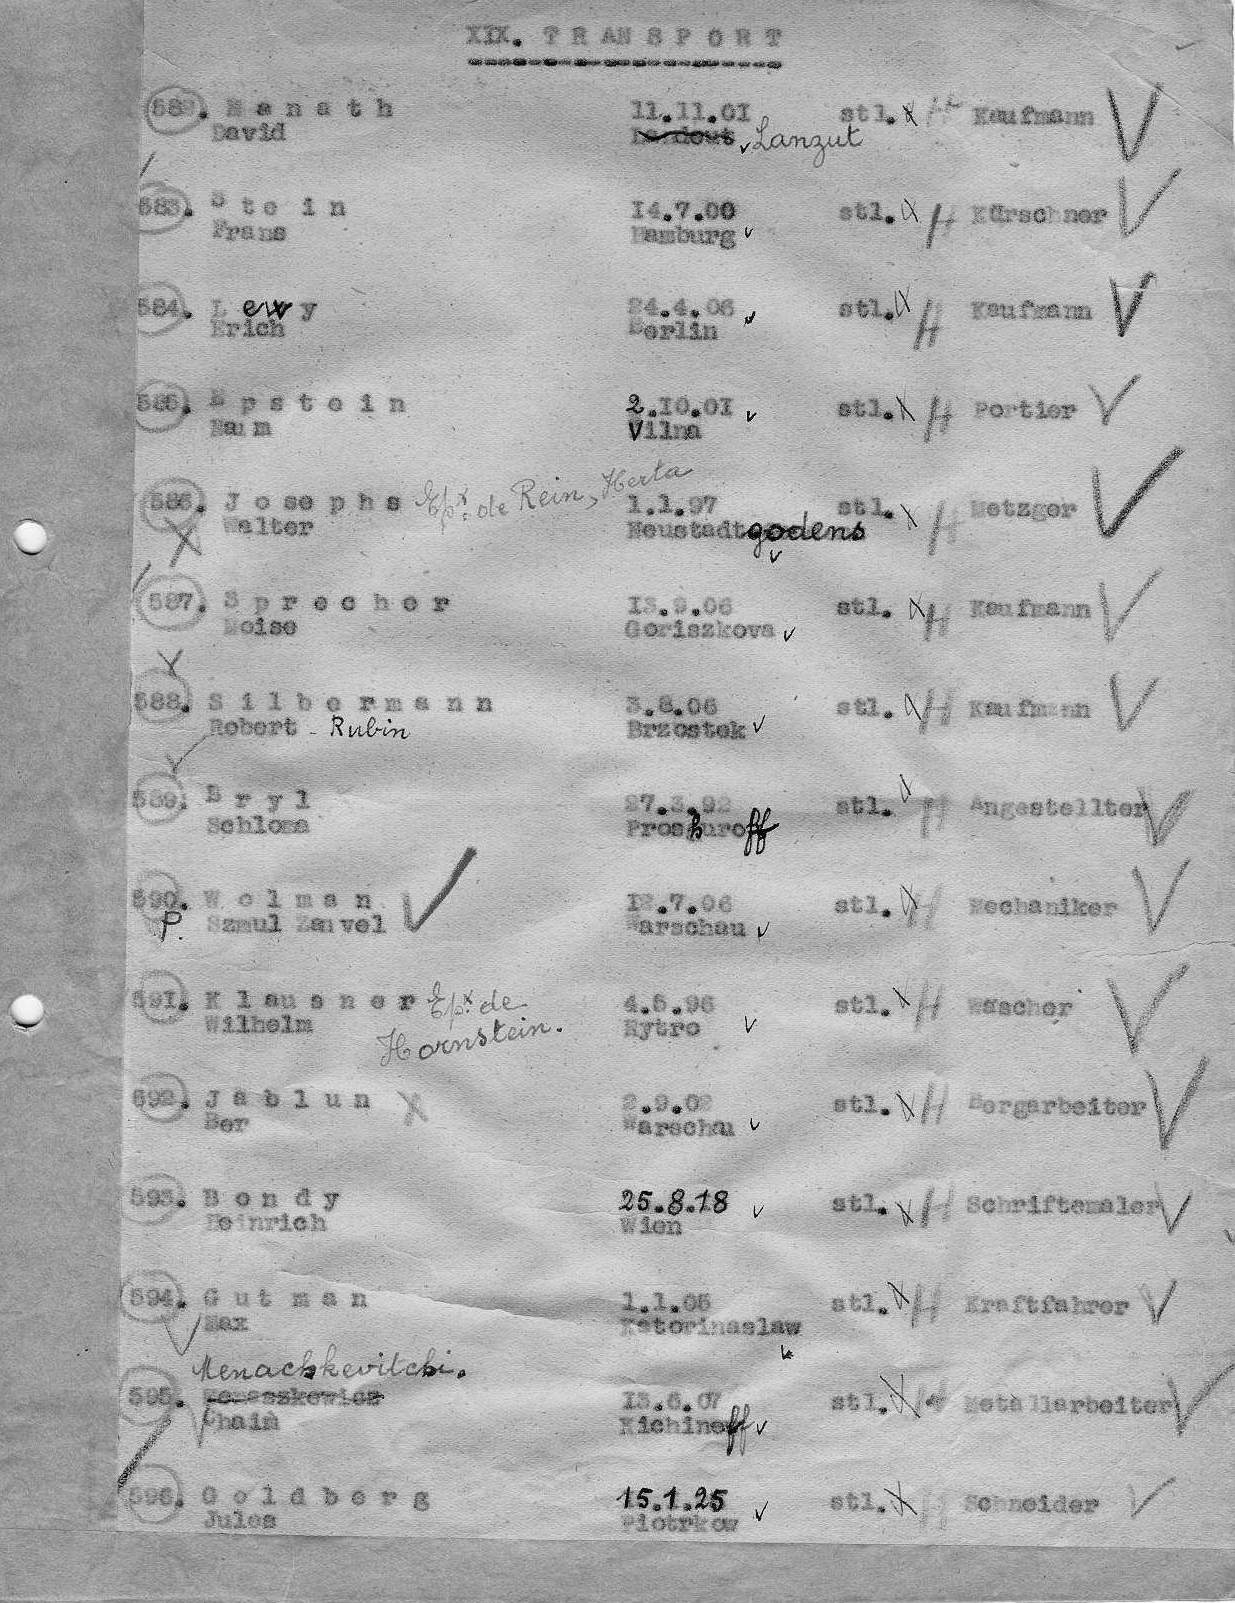 XIX. TRANSPORT
582. Manath 11.11.01 stl. H Kaufmann
David Lanzut
583. Stein 14.7.00 stl. H Kürschner
Frans Hamburg
584. Lewy 24.4.06 stl. H Kaufmann
Erich Berlin
585. Epstein 2.10.01 stl. H Portier
Naum Vilna
586. Josephs Epx. de Rein, Herta 1.1.97 stl. H Metzger
Walter Neustadtgodens
587. Sprecher 13.9.06 stl. H Kaufmann
Moise Goriszkova
588. Silbermann 3.8.06 stl. H Kaufmann
Robert - Rubin Brzostek
589. Bryl 27.3.92 stl. H Angestellter
Schloma Proskuroff
590. Wolman 12.7.06 stl. H Mechaniker
P. Szmul Zanvel Warschau
591. Klausner Epx. de 4.6.96 stl. H Wäscher
Wilhelm Hornstein. Rytro
592. Jablun 2.9.02 stl. H Bergarbeiter
Ber Warschau
593. Bondy 25.8.18 stl. H Schriftemaler
Heinrich Wien
594. Gutman 1.1.05 stl. H Kraftfahrer
Max Katorinaslaw
Menachkevitchi.
595. 13.6.07 stl. Metallarbeiter
Chaim Kichineff
596. Goldberg 15.1.25 stl. H Schneider
Jules Piotrkow